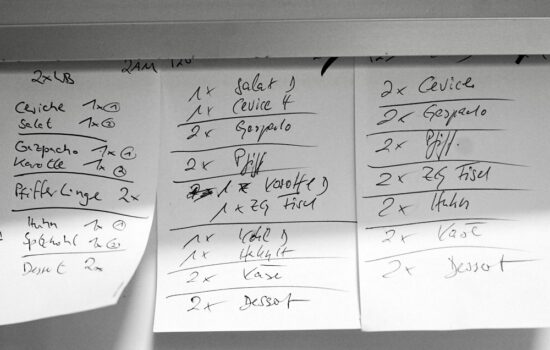 2x WB
Ceviche 1x ①
Salat 1x ②
Gazpacho 1x ①
Karotte 1x ②
Pfifferlinge 2x
Huhn 1x ①
Spitzkohl 1x ②
Dessert 2x
1x Salat D
1x Cevice H
2x Gazpacho
2x Pfiff
1x Karotte D
1x ZG Fisch
1x Kohl D
1x Huhn H
2x Käse
2x Dessert
2x Cevice
2x Gazpacho
2x Pfiff.
2x ZG Fisch
2x Huhn
2x Käse
2x Dessert